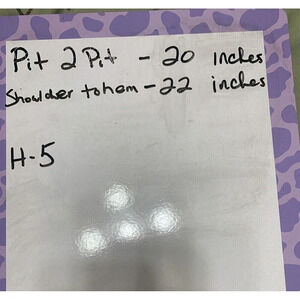 Pit 2 Pit - 20 inches
Shoulder to hem - 22 inches
H-5